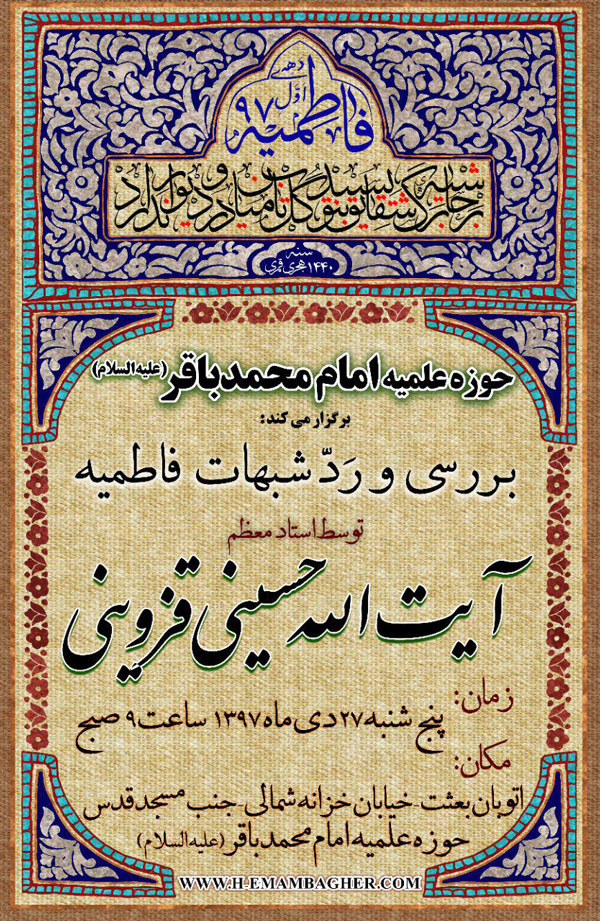 دههٔ اول
فاطمیه ۹۷
بر حاشیه برگ شقایق بنویسید گل تاب فشار در و دیوار ندارد
سنه
۱۴۴۰ هجری قمری
حوزه علمیه امام محمد باقر (علیه السلام)
برگزار می کند:
بررسی و رَدّ شبهات فاطمیه
توسط استاد معظم
آیت الله حسینی قزوینی
زمان:
پنج شنبه ۲۷ دی ماه ۱۳۹۷ ساعت ۹ صبح
مکان:
اتوبان بعثت - خیابان خزانه شمالی - جنب مسجد قدس
حوزه علمیه امام محمد باقر (علیه السلام)
WWW.H-EMAMBAGHER.COM